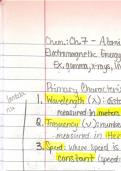 Chem: Ch. 7 - Atomi
Electromagnetic Energy
Ex. gamma, x-rays, in
Primary Characteris
1. Wavelength (λ): dist
measured in meters
2. Frequency (ν): number
measured in Her
3. Speed: where speed is
constant (speed